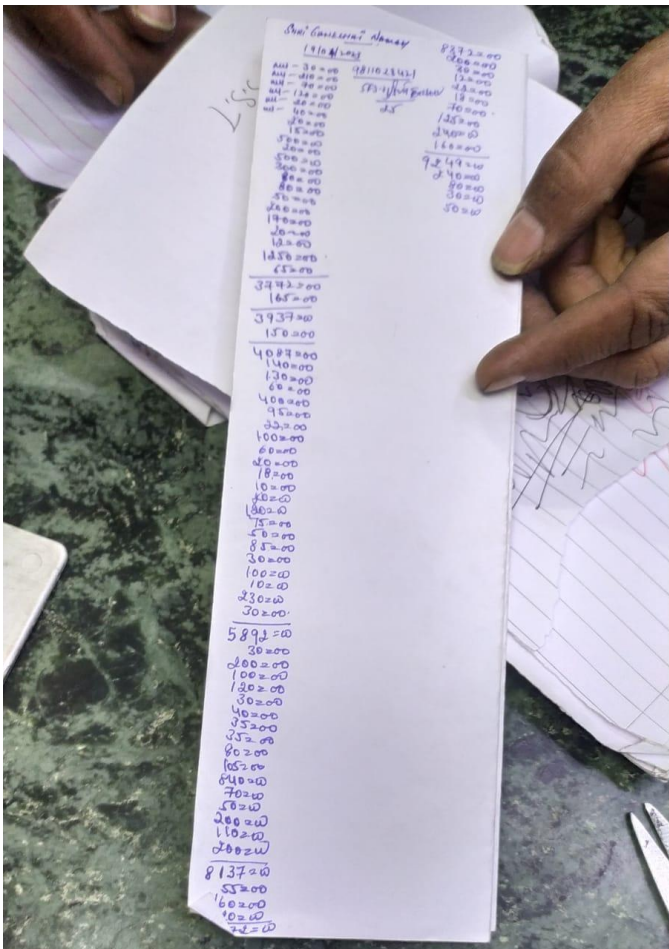 Shri Ganeshai Namay
30=00
210=00
70=00
120=00
20=00
40=00
20=00
15=00
500=00
20=00
500=00
300=00
80=00
50=00
200=00
170=00
20=00
12=00
1250=00
65=00
3772=00
165=00
3937=00
150=00
4087=00
140=00
130=00
60=00
400=00
95=00
22=00
100=00
60=00
20=00
18=00
10=00
180=00
75=00
50=00
85=00
30=00
100=00
10=00
230=00
30=00
5892=00
30=00
200=00
100=00
120=00
30=00
40=00
35=00
35=00
80=00
105=00
840=00
70=00
50=00
200=00
110=00
200=00
8137=00
55=00
160=00
25
8372=00
200=00
30=00
12=00
18=00
70=00
125=00
240=00
160=00
9249=00
240=00
30=00
50=00